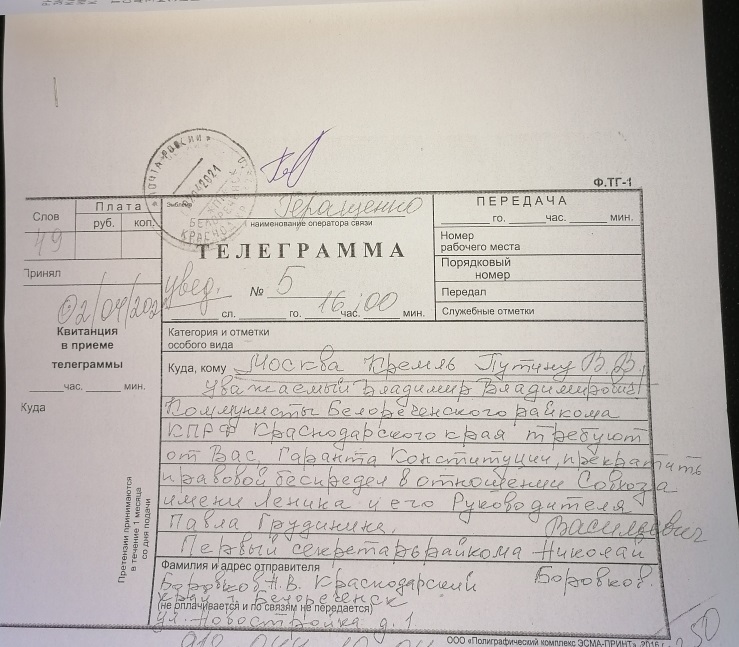 ПОЧТА РОССИИ
02042021
БЕЛОРЕЧЕНСК
Ф.ТГ-1
Слов
49
Плата
руб. коп.
Геращенко
наименование оператора связи
ТЕЛЕГРАММА
увед.
№ 5
16:00
сл. го. час. мин.
ПЕРЕДАЧА
го. час. мин.
Номер
рабочего места
Порядковый
номер
Передал
Служебные отметки
Принял
02/04/202
Квитанция
в приеме
телеграммы
час. мин.
Куда
Претензии принимаются
в течение 1 месяца
со дня подачи
Категория и отметки
особого вида
Куда, кому Москва Кремль Путину В.В.
Уважаемый Владимир Владимирович
Коммунисты Белореченского райкома
КПРФ Краснодарского края требуют
от Вас, Гаранта Конституции, прекратить
правовой беспредел в отношении Совхоза
имени Ленина и его Руководителя
Павла Грудинина.
Васильевич
Первый секретарь райкома Николай
Боровков.
Фамилия и адрес отправителя
Боровков Н.В. Краснодарский
край г. Белореченск
(не оплачивается и по связям не передается)
ул. Новостройка д. 1
ООО «Полиграфический комплекс ЭСМА-ПРИНТ», 2016 г.